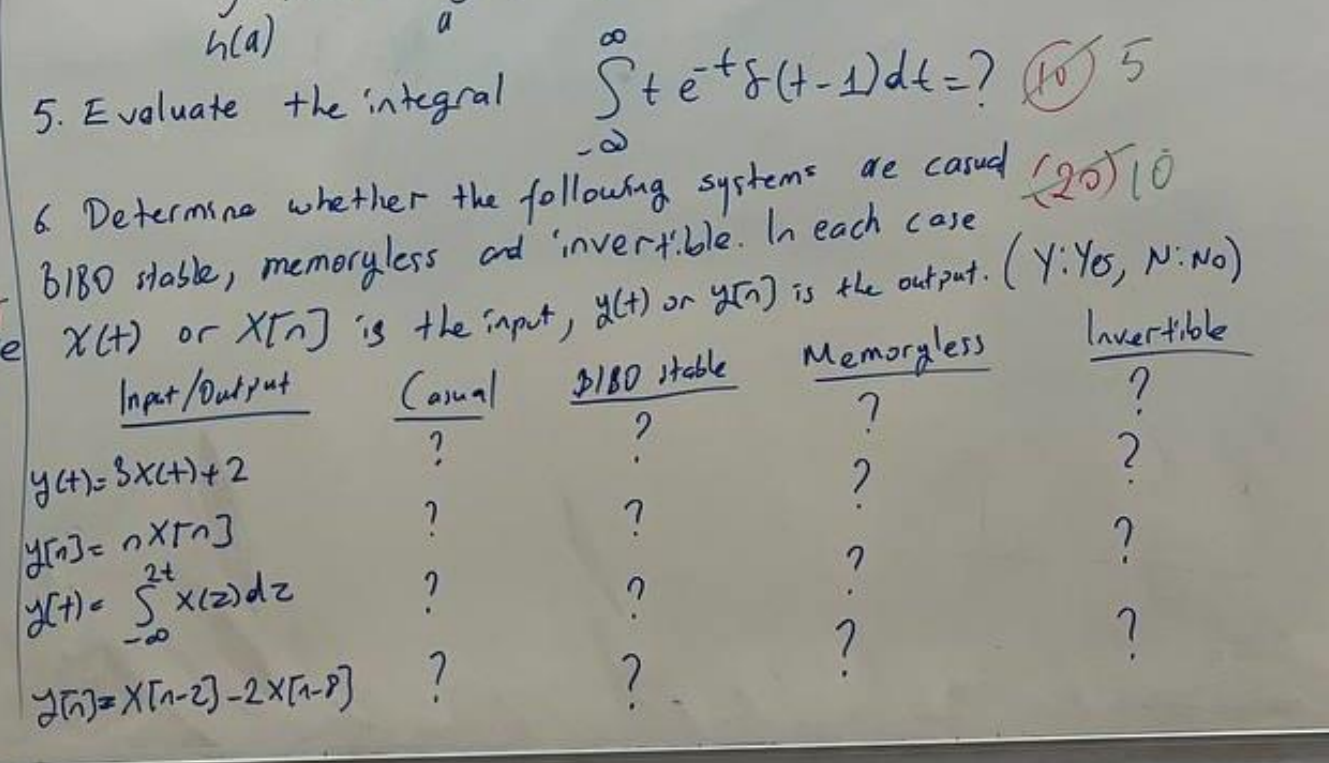 h(a) a
5. Evaluate the integral ∫_{-∞}^{∞} t e^{-t} δ(t-1)dt=? (10) 5
6 Determine whether the following systems are casual (20) 10
BIBO stable, memoryless and invertible. In each case
x(t) or x[n] is the input, y(t) or y[n] is the output. (Y:Yes, N:No)
e
Input/Output Casual BIBO stable Memoryless Invertible
y(t)=3x(t)+2 ? ? ? ?
y[n]= nx[n] ? ? ? ?
y(t)= ∫_{-∞}^{2t} x(z)dz ? ? ? ?
y[n]=x[n-2]-2x[n-8] ? ? ? ?